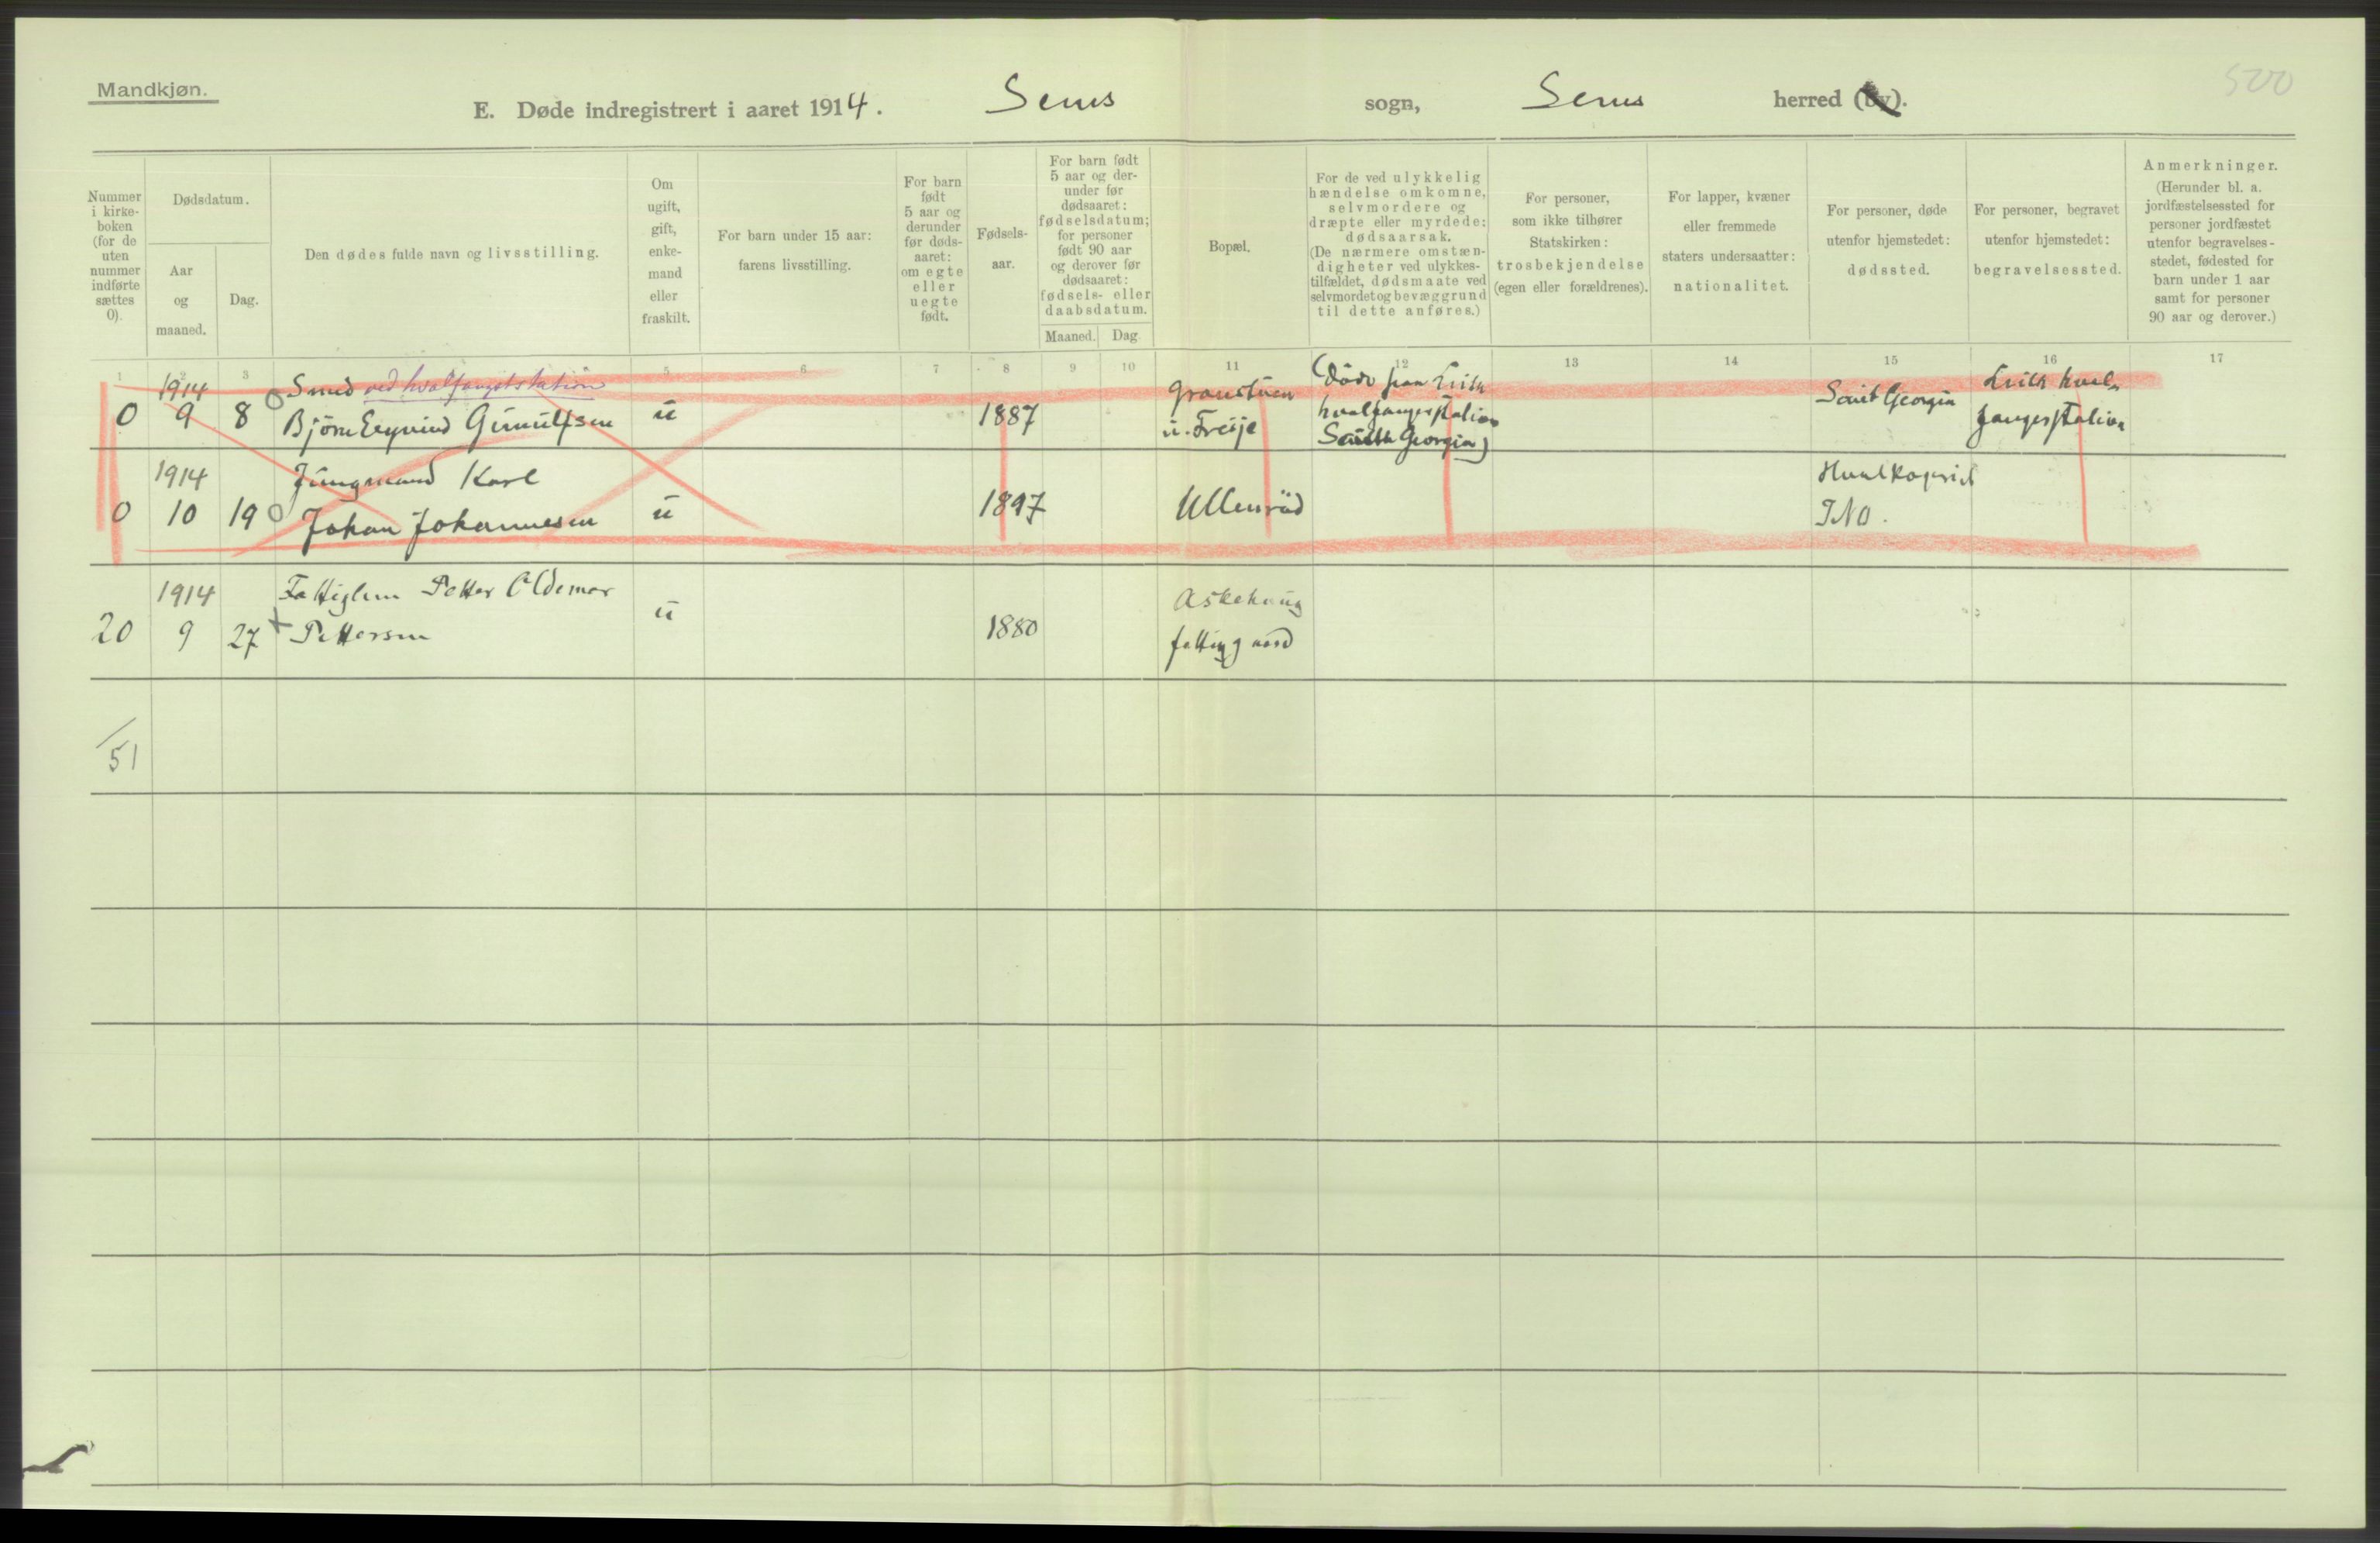 Mandkjøn.
500
E. Døde indregistrert i aaret 1914. Sems sogn, Sems herred (by).
Nummer i kirke-boken (for de uten nummer indførte sættes 0).
Dødsdatum.
Aar og maaned.
Dag.
Den dødes fulde navn og livsstilling.
Om ugift, gift, enke-mand eller fraskilt.
For barn under 15 aar: farens livsstilling.
For barn født 5 aar og derunder før døds-aaret: om egte eller uegte født.
Fødsels-aar.
For barn født 5 aar og der-under før dødsaaret: fødselsdatum; for personer født 90 aar og derover før dødsaaret: fødsels- eller daabsdatum.
Maaned. Dag
Bopæl.
For de ved ulykkelig hændelse omkomne, selvmordere og dræpte eller myrdede: dødsaarsak. (De nærmere omstæn-digheter ved ulykkes-tilfældet, dødsmaate ved selvmordet og bevæggrund til dette anføres.)
For personer, som ikke tilhører Statskirken: trosbekjendelse (egen eller forældrenes).
For lapper, kvæner eller fremmede staters undersaatter: nationalitet.
For personer, døde utenfor hjemstedet: dødssted.
For personer, begravet utenfor hjemstedet: begravelsessted.
Anmerkninger. (Herunder bl. a. jordfæstelsessted for personer jordfæstet utenfor begravelses-stedet, fødested for barn under 1 aar samt for personer 90 aar og derover.)
1 2 3 5 6 7 8 9 10 11 12 13 14 15 16 17
0 1914 9 8 Smed ved hvalfangststation
Bjørn Eyvind Gunulfsen ū 1887 Granstuen
u. Freije (døde paa Leith
hvalfangerstation
South Georgia) South Georgia Leith hval-
fangerstation
0 1914 10 19 Jungmand Karl
Johan Johannesen ū 1897 Ullenrød Hvalkogeriet
INO.
20 1914 9 27 Fattiglem Petter Oldemar
Pettersen ū 1880 Askehaug
fattiggaard
/51